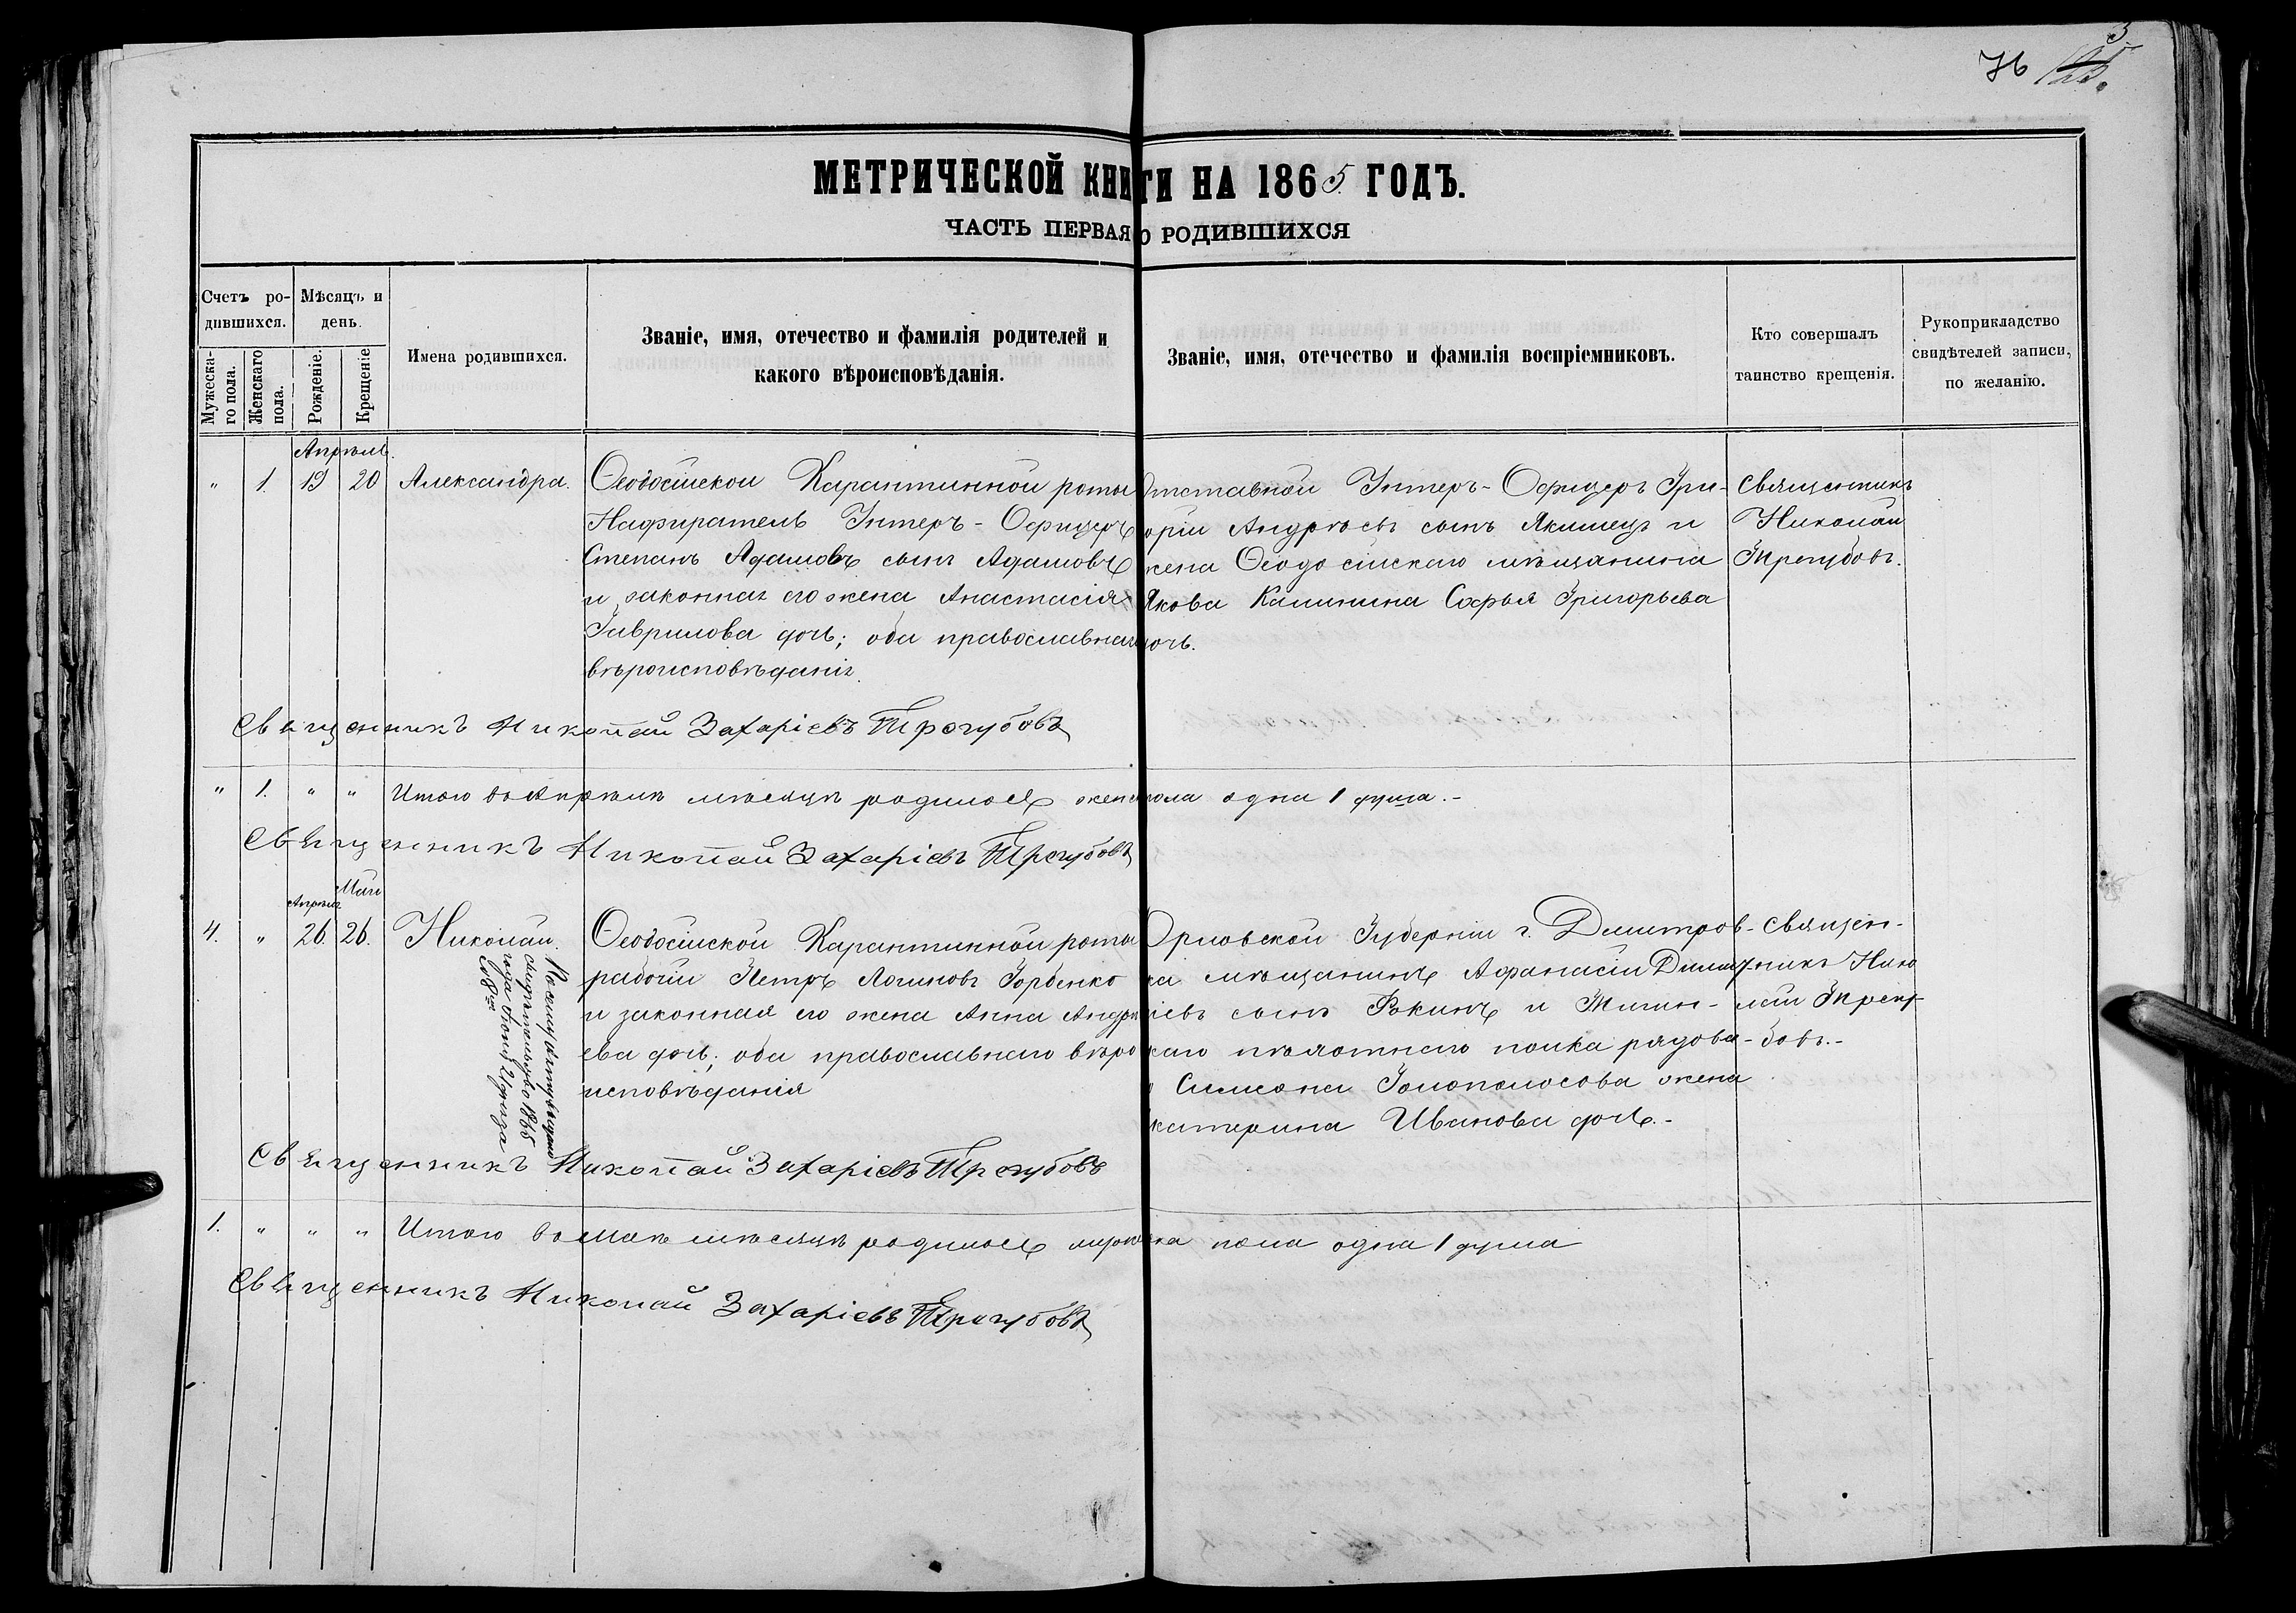 76
МЕТРИЧЕСКОЙ КНИГИ НА 1865 ГОДЪ.
ЧАСТЬ ПЕРВАЯ О РОДИВШИХСЯ
Счетъ ро-
дившихся.
Мужеска-
го пола.
Женскаго
пола.
Мѣсяцъ и
день.
Рожденіе.
Крещеніе
Имена родившихся.
Званіе, имя, отечество и фамилія родителей и
какого вѣроисповѣданія.
Званіе, имя, отечество и фамилія воспріемниковъ.
Кто совершалъ
таинство крещенія.
Рукоприкладство
свидѣтелей записи,
по желанію.
Апрѣль.
" 1. 19 20 Александра.
Ѳеодосійской Карантинной роты
Надзиратель Унтеръ-Офицеръ
Степанъ Адамовъ сынъ Адамовъ
и законная его жена Анастасія
Гаврилова дочь; оба православнаго
вѣроисповѣданія.
Отставной Унтеръ-Офицеръ Гри-
горій Андрѣевъ сынъ Якимецъ и
жена Ѳеодосійскаго мѣщанина
Якова Калинина Софья Григорьева
дочь.
Священникъ
Николай
Трегубовъ.
Священникъ Николай Захаріевъ Трегубовъ
" 1. " " Итого въ Апрѣлѣ мѣсяцѣ родилось женск пола одна 1 душа.-
Священникъ Николай Захаріевъ Трегубовъ
Апрѣля Мая
4. " 26. 26. Николай.
По сему выдано
свидѣтельство 1865
года Іюня 21 дня за
№ 8м
Ѳеодосійской Карантинной роты
рабочій Петръ Логиновъ Горбенко
и законная его жена Анна Андрѣ
ева дочь; оба православнаго вѣро
исповѣданія
Орловской Губерніи г. Димитров-
ка мѣщанинъ Афанасій Димит
ріевъ сынъ Фокинъ и
каго пѣхотнаго полка рядова-
го Симеона Голополосова жена
Екатерина Иванова дочь.-
Священ-
никъ Нико
лай Трегу-
бовъ.-
Священникъ Николай Захаріевъ Трегубовъ
1. " " " Итого въ Маѣ мѣсяцѣ родилось мужеска пола одна 1 душа
Священникъ Николай Захаріевъ Трегубовъ